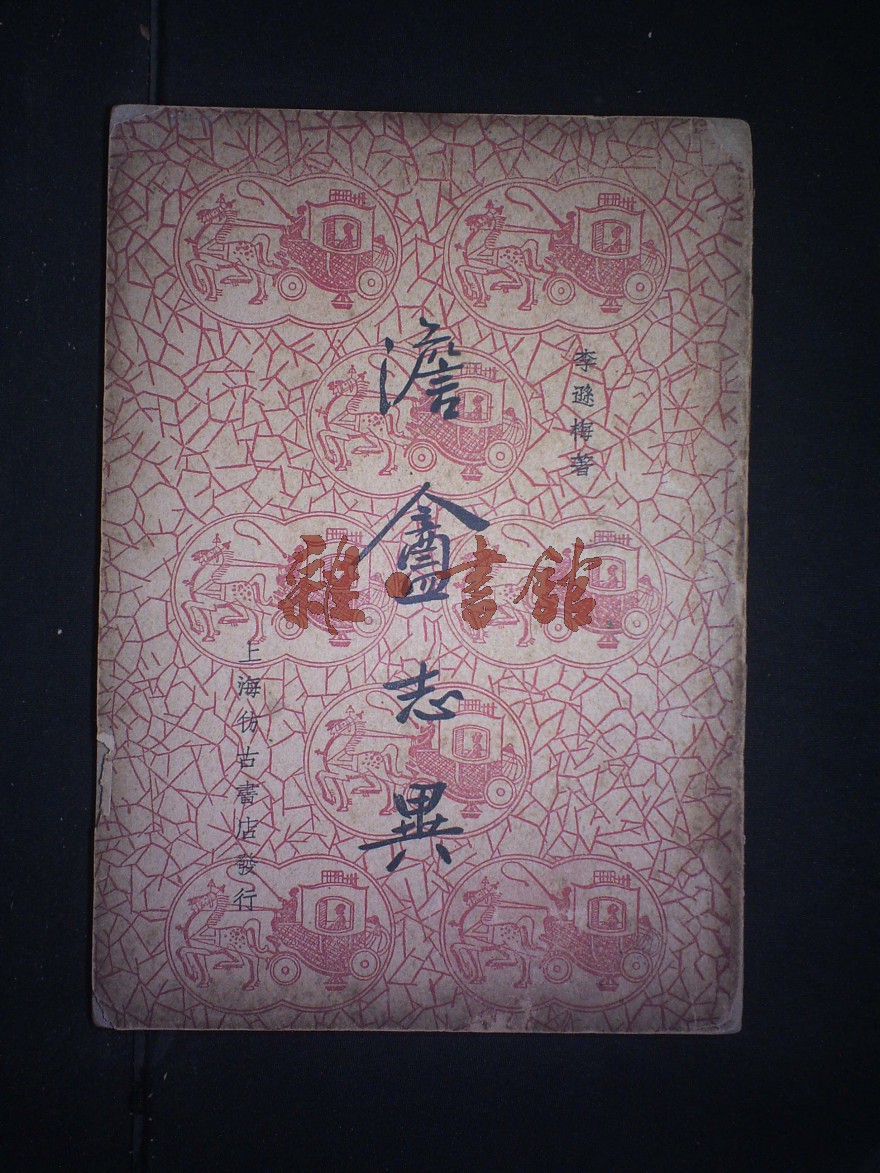 李遜梅著
澹盦志異
上海彷古書店發行
雜·書館